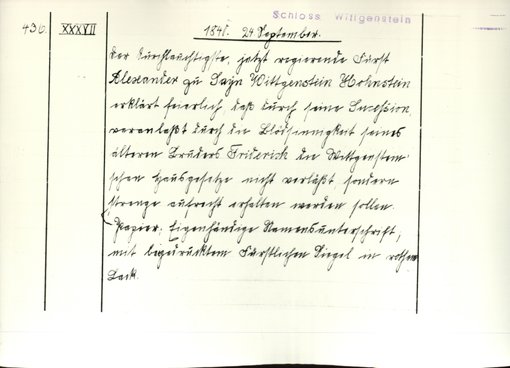 Schloss Wittgenstein
436. XXXVII 1841. 24 September.
Der Durchlauchtigste, jetzt regierende Fürst
Alexander zu Sayn Wittgenstein Hohnstein
erklärt feierlich, daß durch seine Succession,
veranlaßt durch die Blödsinnigkeit seines
älteren Bruders Friderick die Wittgenstein
schen Hausgesetze nicht verläßt sondern
strenge aufrecht erhalten werden sollen.
Papier; Eigenhändige Namensunterschrift,
mit beigedrucktem Fürstlichen Siegel in rothem
Lack.